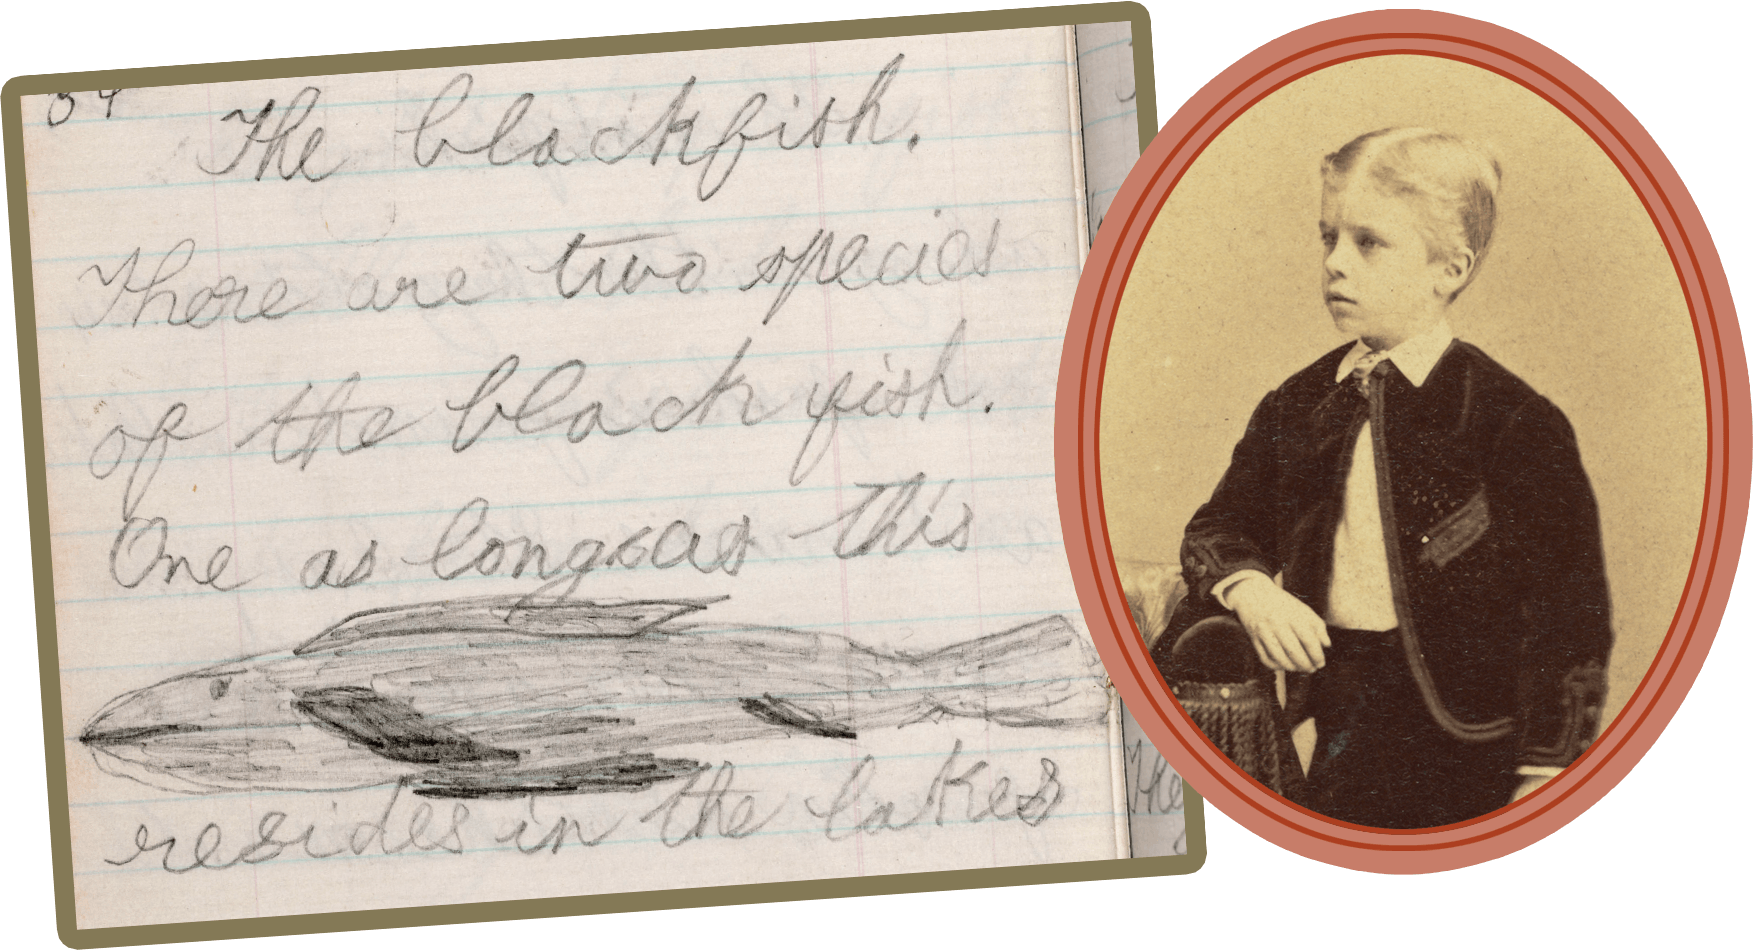 34
The blackfish.
There are two species
of the black fish.
One as long as this
resides in the lakes
The